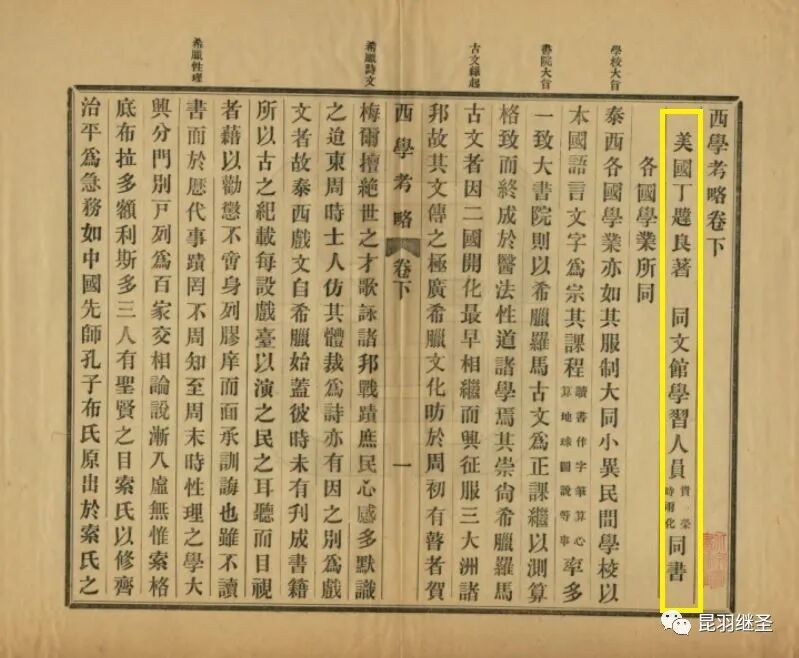 學校大旨
書院大旨
古文緣起
希臘詩文
希臘性理
西學考略卷下
美國丁韙良著 同文館學習人員 貴榮 時雨化 同書
各國學業所同
泰西各國學業亦如其服制大同小異民間學校以
本國語言文字爲宗其課程 讀書作字筆算心算地球圖說等事 率多
一致大書院則以希臘羅馬古文爲正課繼以測算
格致而終成於醫法性道諸學焉其崇尙希臘羅馬
古文者因二國開化最早相繼而興征服三大洲諸
邦故其文傳之極廣希臘文化昉於周初有瞽者賀
西學考略 卷下 一
梅爾擅絕世之才歌詠諸邦戰蹟庶民心感多默識
之迨東周時士人仿其體裁爲詩亦有因之別爲戲
文者故泰西戲文自希臘始蓋彼時未有刋成書籍
所以古之紀載每設戲臺以演之民之耳聽而目視
者藉以勸懲不啻身列膠庠而面承訓誨也雖不讀
書而於歷代事蹟罔不周知至周末時性理之學大
興分門別戸列爲百家交相論說漸入虛無惟索格
底布拉多額利斯多三人有聖賢之目索氏以修齊
治平爲急務如中國先師孔子布氏原出於索氏之
昆羽继圣